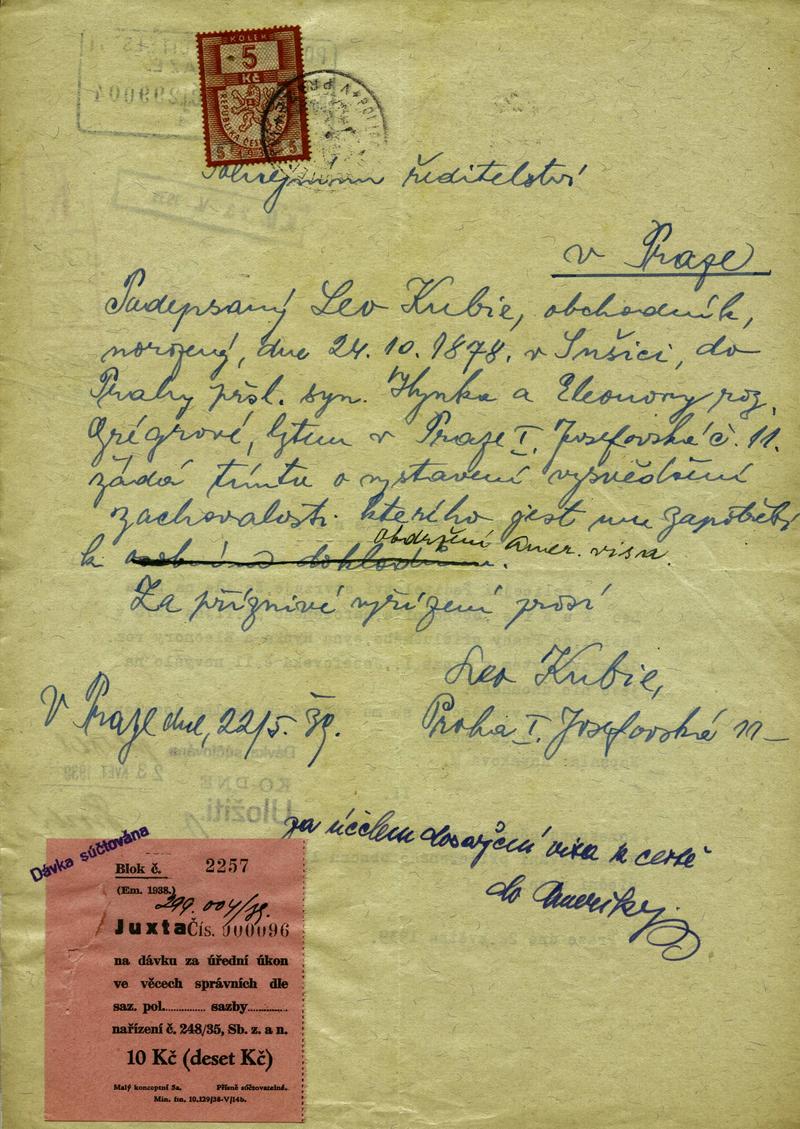 KOLEK
5
Kč
5 5
Policejnímu ředitelství
v Praze
Podepsaný Leo Kubie, obchodník,
narozený, dne 24. 10. 1878. v Sušici, do
Prahy přísl. syn. Hynka a Eleonory roz.
Grégrové, bytem v Praze I. Josefovská č. 11.
žádá tímto o vystavení vysvědčení
zachovalosti. kterého jest mu zapotřebí
k osobním dokladům. obdržení amer. visa.
Za příznivé vyřízení prosí
Leo Kubie,
V Praze dne, 22/5. 39. Praha I. Josefovská 11–
za účelem dosažení visa k cestě
do Ameriky.
Dávka súčtována
Blok č. 2257
(Em. 1938.)
299.004/39.
Juxta Čís. 000096
na dávku za úřední úkon
ve věcech správních dle
saz. pol. ............ sazby ............
nařízení č. 248/35, Sb. z. a n.
10 Kč (deset Kč)
Malý konceptní 5a. Přísně súčtovatelné.
Min. fin. 10.129/38-V/14b.